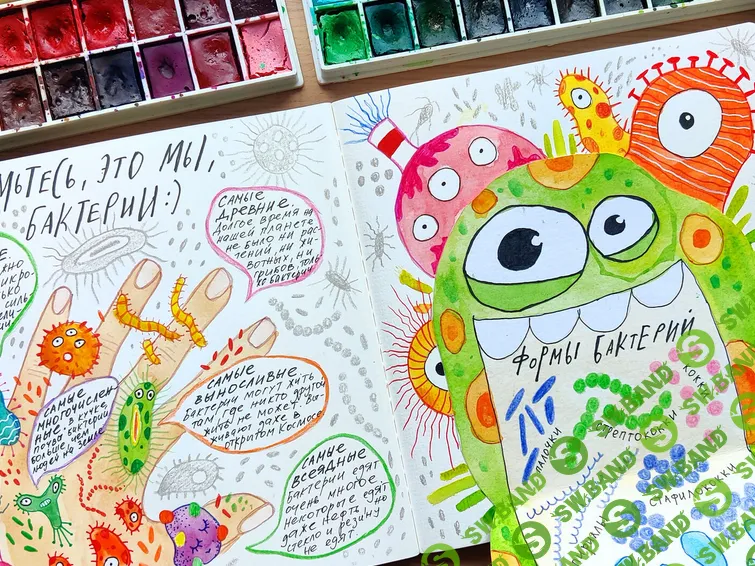 МЬТЕСЬ, ЭТО МЫ,
БАКТЕРИИ:)
САМЫЕ
ДРЕВНИЕ.
Долгое время на
нашей планете
не было ни рас-
тений, ни жи-
вотных, ни
грибов, толь-
ко бактерии.
САМЫЕ
МНОГОЧИСЛЕН-
НЫЕ. В кучке
почвы бактерий
больше, чем
людей на Земле
САМЫЕ
ВЫНОСЛИВЫЕ.
Бактерии могут жить
там, где никто другой
жить не может. Вы-
живают даже в
открытом космосе
САМЫЕ
ВСЕЯДНЫЕ
Бактерии едят
очень многое.
Некоторые едят
даже нефть, но
стекло и резину
не едят.
ФОРМЫ БАКТЕРИЙ
ПАЛОЧКИ
СТРЕПТОКОККИ
КОККИ
СТАФИЛОКОККИ
SW.BAND
SW.BAND
SW.BAND
SW.BAND
SW.BAND
SW.BAND